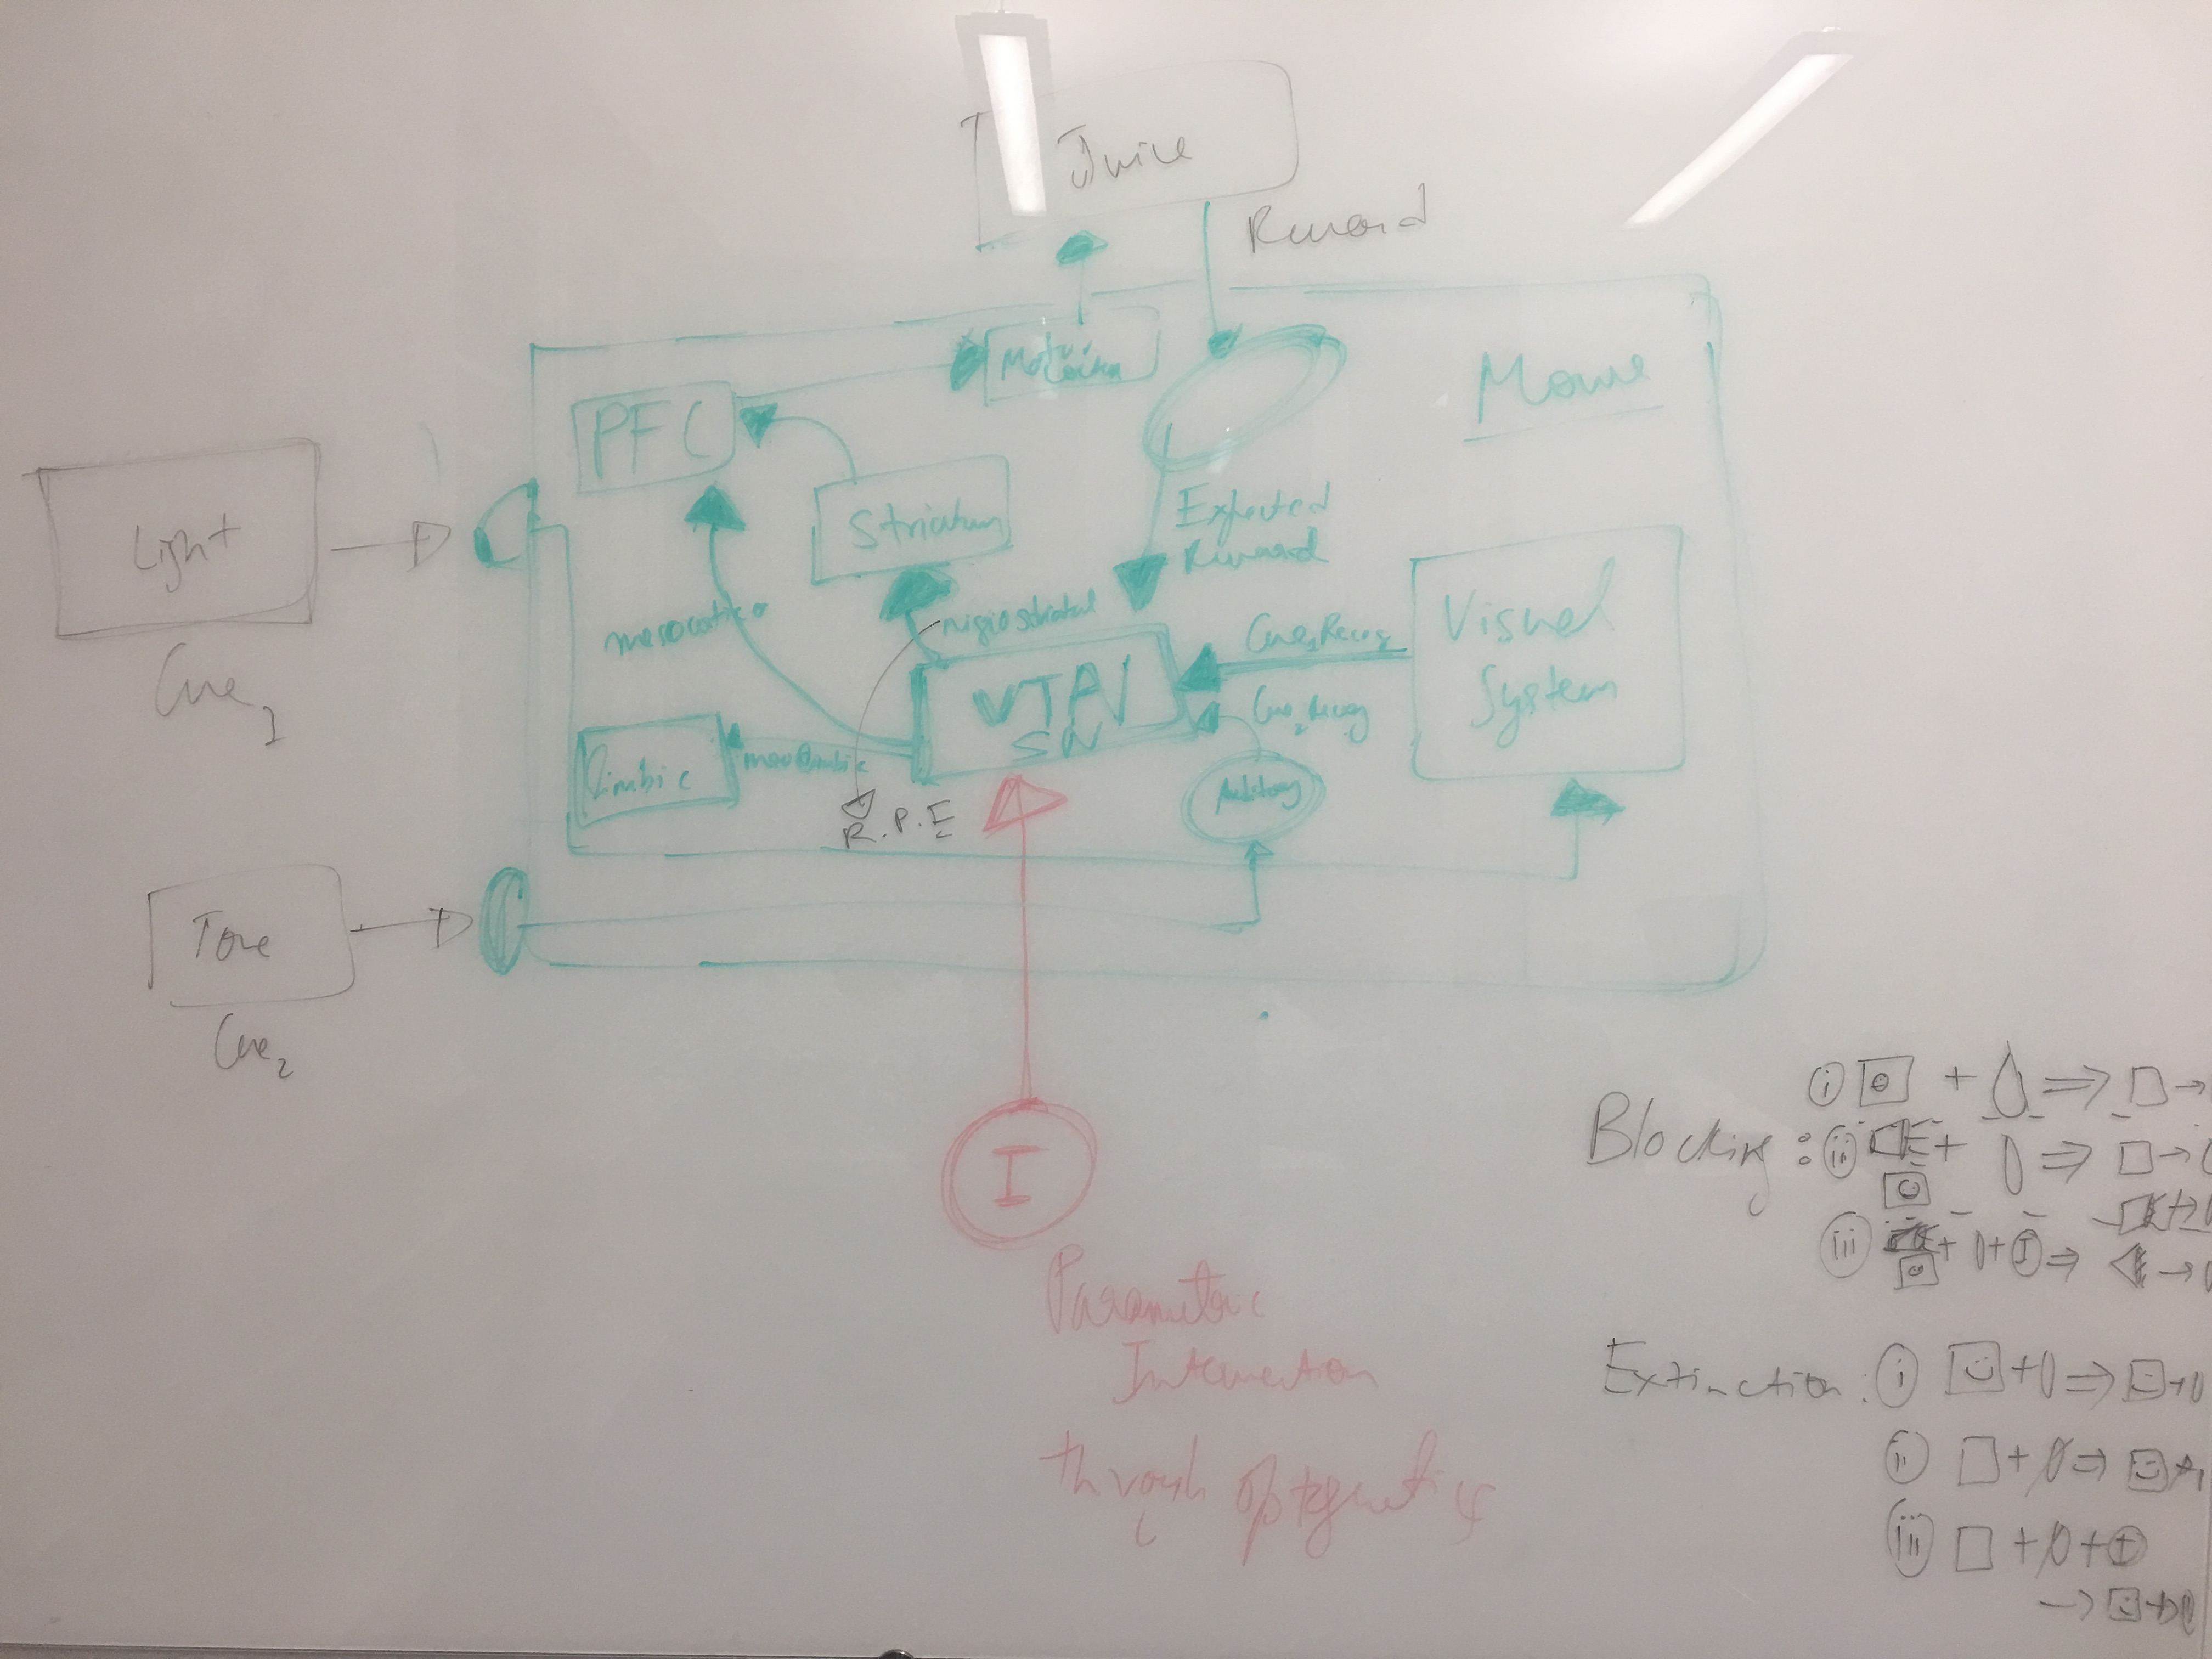 Juice
Reward
Mouse
PFC
Striatum
Expected
Reward
Light
Cue 1
nigrostriatal
Visual
System
VTA/
SN
Cue 2 Recog
Limbic
mesolimbic
Auditory
R.P.E
Tone
Cue 2
I
Parametric
Intervention
through optogenetics
Blocking :
i + ⇒ →
ii + ⇒ →
iii + + I ⇒ →
Extinction : i + ⇒
ii + ⇒
iii + + I
→